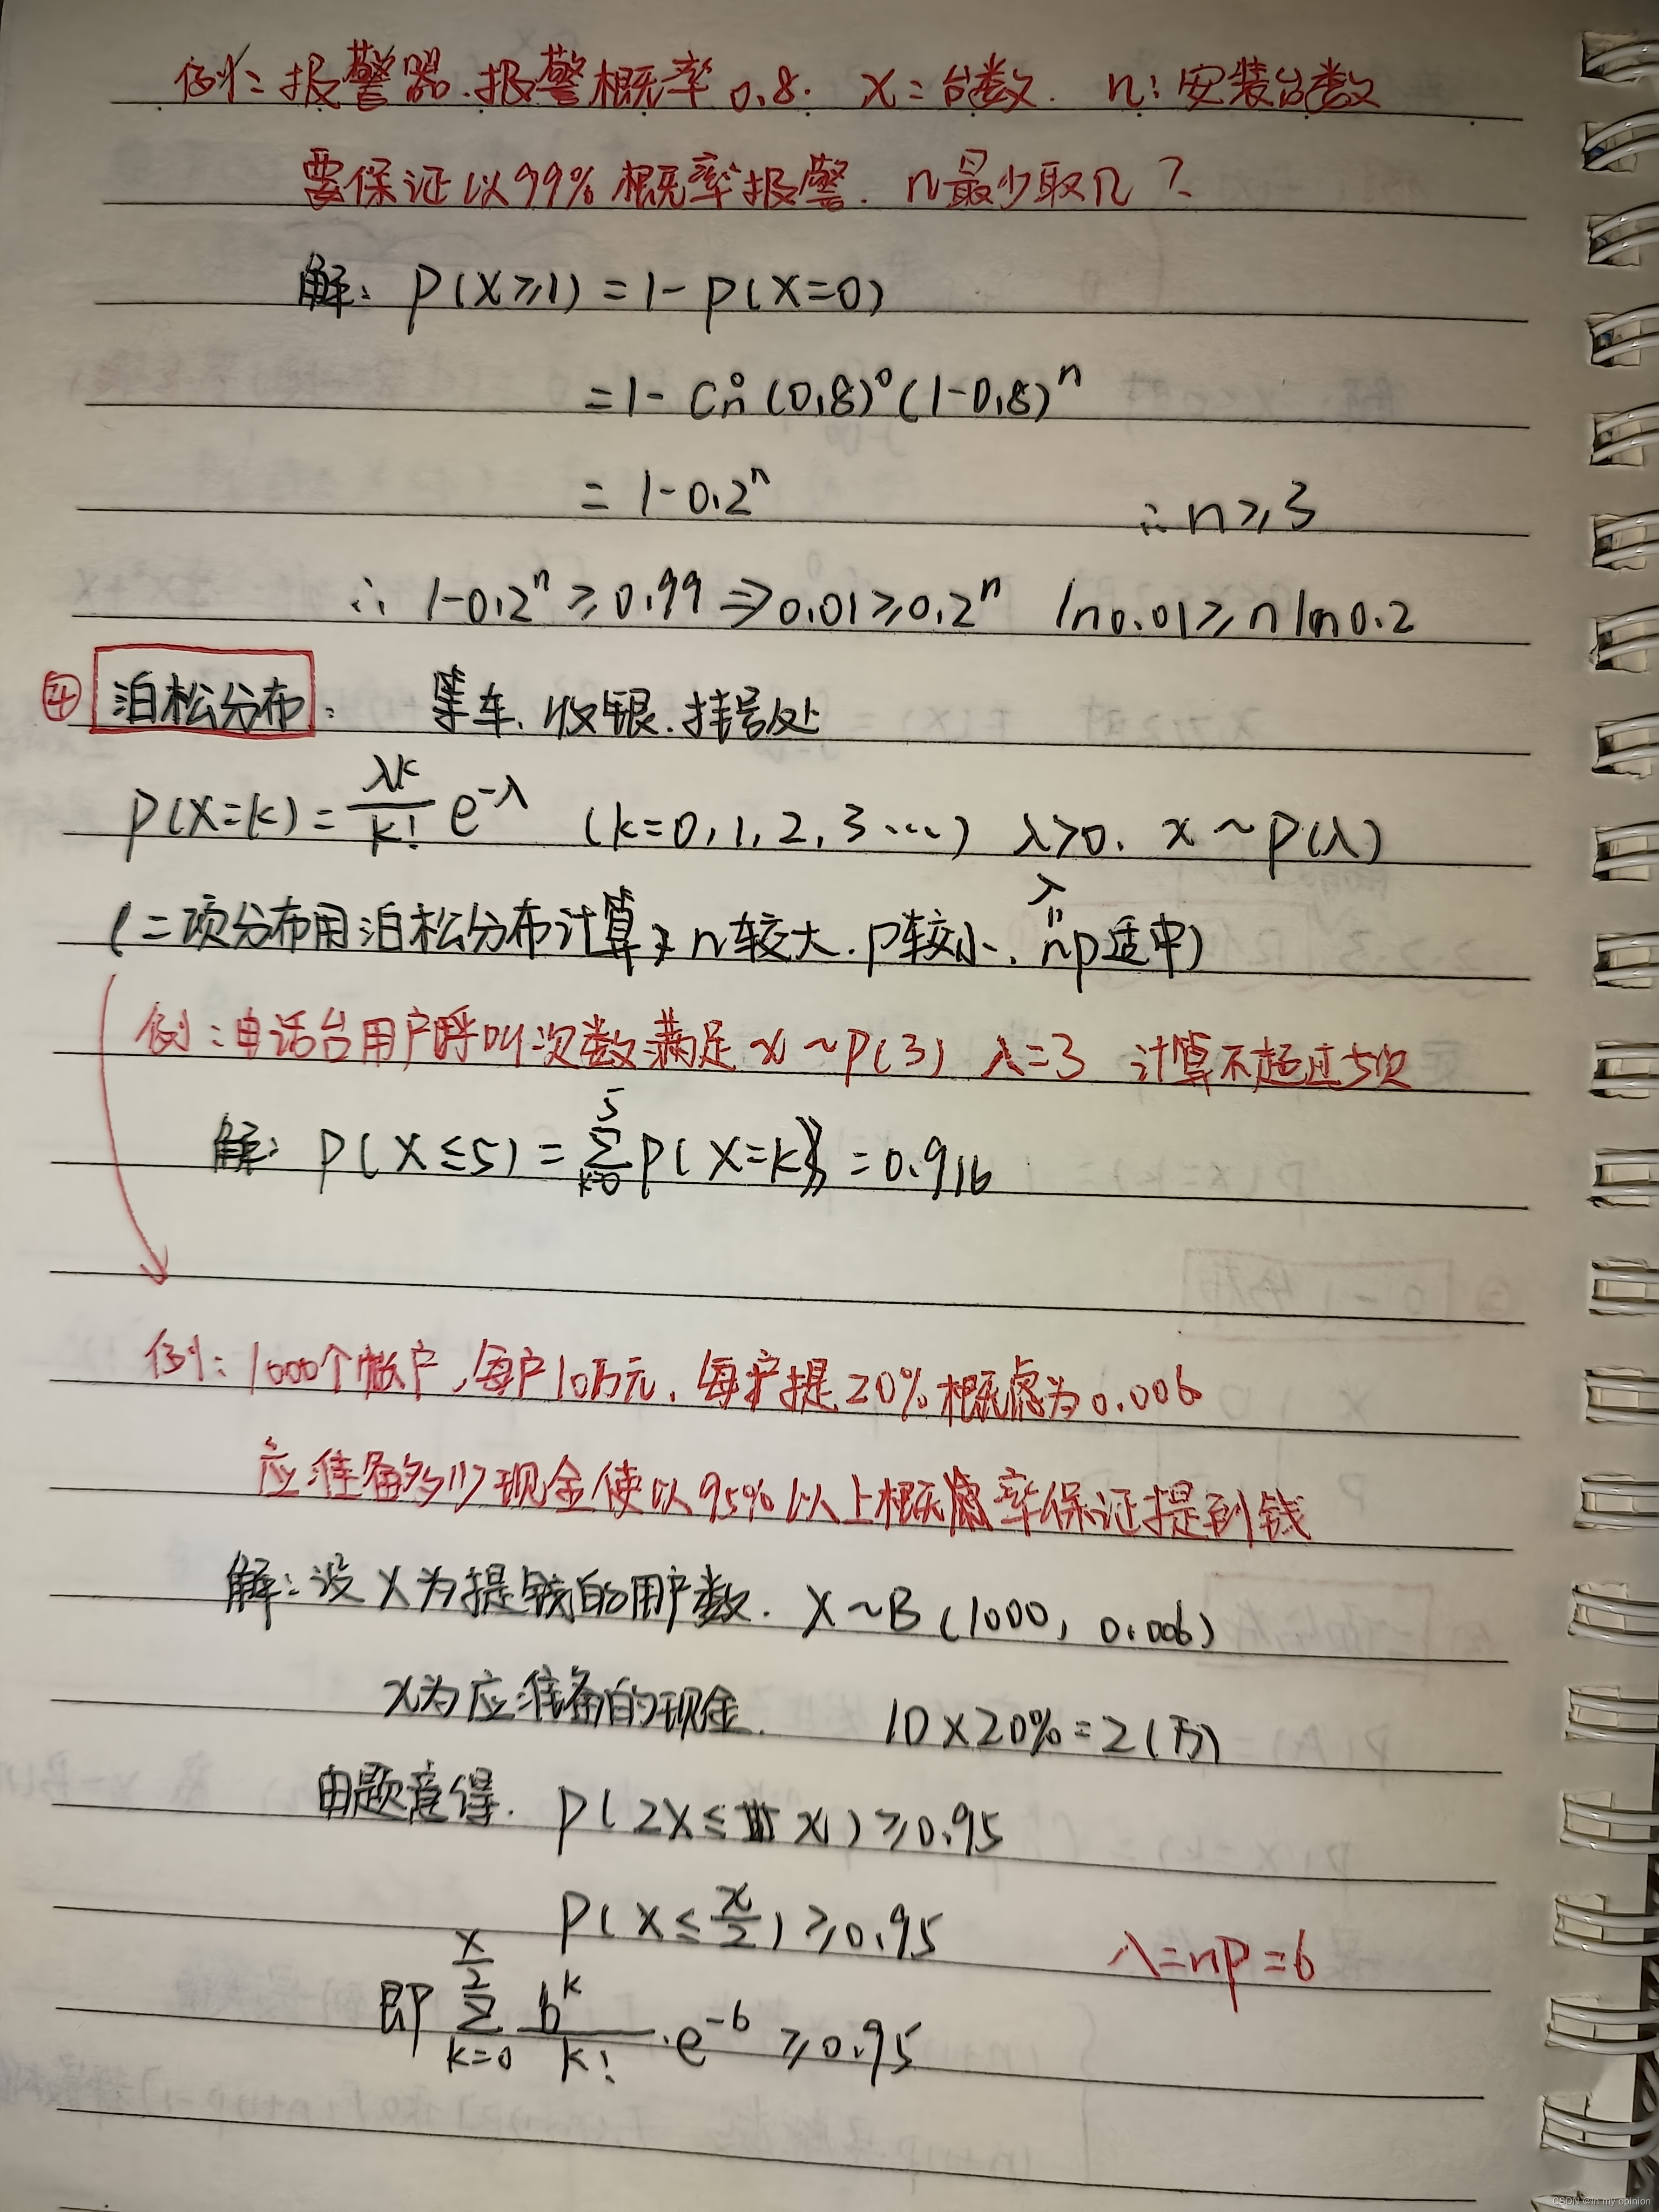 例：报警器.报警概率0.8. X=台数. n:安装台数
要保证以99%概率报警. n最少取几？
解: P(X≥1)=1-P(X=0)
=1-Cn⁰(0.8)⁰(1-0.8)ⁿ
=1-0.2ⁿ ∴n≥3
∴ 1-0.2ⁿ≥0.99⇒0.01≥0.2ⁿ ln0.01≥nln0.2
④ 泊松分布: 等车.收银.挂号处
P(X=k)=λk/k! e^-λ (k=0,1,2,3…) λ>0. x~P(λ)
(二项分布用泊松分布计算, n较大.p较小. np适中)
λ
=
例:电话台用户呼叫次数满足x~P(3) λ=3 计算不超过5次
解: P(X≤5)=5∑k=0 P(X=k)=0.916
例: 1000个帐户,每户10万元.每户提20%概虑为0.006
应准备多少现金使以95%以上概率保证提到钱
解:设X为提钱的用户数. X~B(1000, 0.006)
x为应准备的现金. 10×20%=2(万)
由题意得. P(2X≤x)≥0.95
P(X≤x/2)≥0.95 λ=np=6
即 x/2∑k=0 6^k/k!·e^-6≥0.95
CSDN @in my opinion